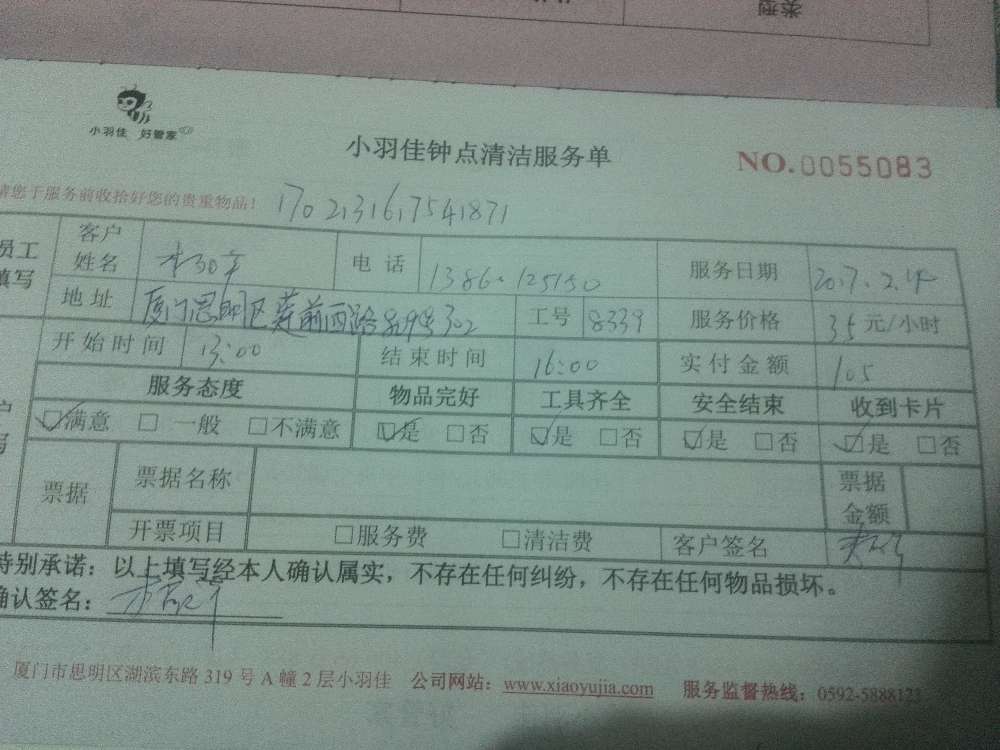 类型
小羽佳 好管家
小羽佳钟点清洁服务单
NO.0055083
请您于服务前收拾好您的贵重物品!
员工填写
客户姓名 电话 服务日期 2017.2.14
地址 厦门思明区莲前西路 302 工号 8339 服务价格 35 元/小时
开始时间 13:00 结束时间 16:00 实付金额 105
服务态度 物品完好 工具齐全 安全结束 收到卡片
☑满意 □一般 □不满意 ☑是 □否 ☑是 □否 ☑是 □否 ☑是 □否
票据 票据名称 票据金额
开票项目 □服务费 □清洁费 客户签名
特别承诺：以上填写经本人确认属实，不存在任何纠纷，不存在任何物品损坏。
确认签名：
厦门市思明区湖滨东路 319 号 A 幢 2 层小羽佳 公司网站：www.xiaoyujia.com 服务监督热线：0592-5888123